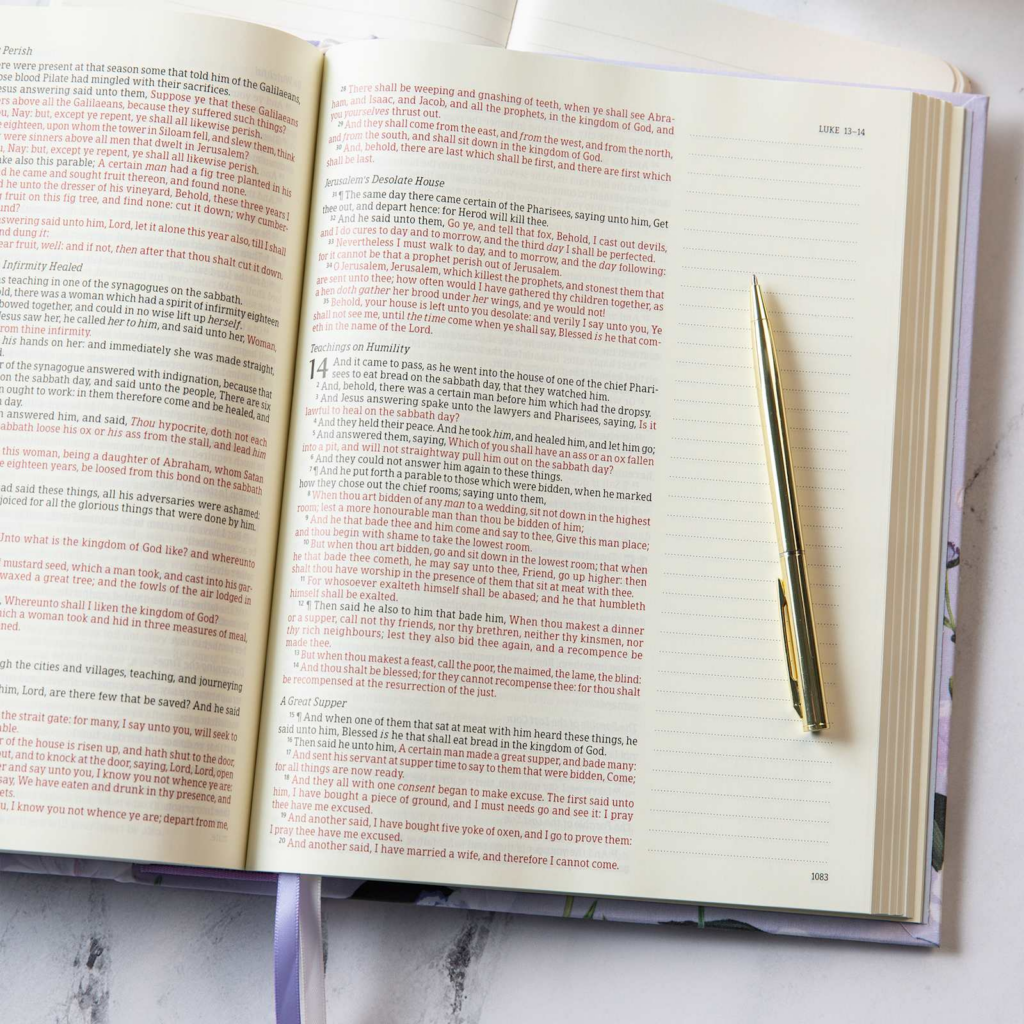 Perish
ere were present at that season some that told him of the Galilaeans,
ose blood Pilate had mingled with their sacrifices.
esus answering said unto them, Suppose ye that these Galilaeans
ers above all the Galilaeans, because they suffered such things?
u, Nay: but, except ye repent, ye shall all likewise perish.
e eighteen, upon whom the tower in Siloam fell, and slew them, think
were sinners above all men that dwelt in Jerusalem?
u, Nay: but, except ye repent, ye shall all likewise perish.
ake also this parable; A certain man had a fig tree planted in his
d he came and sought fruit thereon, and found none.
d he unto the dresser of his vineyard, Behold, these three years I
fruit on this fig tree, and find none: cut it down; why cumber-
und?
swering said unto him, Lord, let it alone this year also, till I shall
nd dung it:
ear fruit, well: and if not, then after that thou shalt cut it down.
Infirmity Healed
s teaching in one of the synagogues on the sabbath.
old, there was a woman which had a spirit of infirmity eighteen
bowed together, and could in no wise lift up herself.
Jesus saw her, he called her to him, and said unto her, Woman,
rom thine infirmity.
his hands on her: and immediately she was made straight,
d.
r of the synagogue answered with indignation, because that
on the sabbath day, and said unto the people, There are six
n ought to work: in them therefore come and be healed, and
h day.
n answered him, and said, Thou hypocrite, doth not each
abbath loose his ox or his ass from the stall, and lead him
this woman, being a daughter of Abraham, whom Satan
e eighteen years, be loosed from this bond on the sabbath
ad said these things, all his adversaries were ashamed:
joiced for all the glorious things that were done by him.
Unto what is the kingdom of God like? and whereunto
mustard seed, which a man took, and cast into his gar-
waxed a great tree; and the fowls of the air lodged in
, Whereunto shall I liken the kingdom of God?
hich a woman took and hid in three measures of meal,
ned.
gh the cities and villages, teaching, and journeying
him, Lord, are there few that be saved? And he said
the strait gate: for many, I say unto you, will seek to
able.
r of the house is risen up, and hath shut to the door,
out, and to knock at the door, saying, Lord, Lord, open
er and say unto you, I know you not whence ye are:
say, We have eaten and drunk in thy presence, and
ets.
u, I know you not whence ye are; depart from me,
28 There shall be weeping and gnashing of teeth, when ye shall see Abra-
ham, and Isaac, and Jacob, and all the prophets, in the kingdom of God, and
you yourselves thrust out.
29 And they shall come from the east, and from the west, and from the north,
and from the south, and shall sit down in the kingdom of God.
30 And, behold, there are last which shall be first, and there are first which
shall be last.
Jerusalem's Desolate House
31 ¶ The same day there came certain of the Pharisees, saying unto him, Get
thee out, and depart hence: for Herod will kill thee.
32 And he said unto them, Go ye, and tell that fox, Behold, I cast out devils,
and I do cures to day and to morrow, and the third day I shall be perfected.
33 Nevertheless I must walk to day, and to morrow, and the day following:
for it cannot be that a prophet perish out of Jerusalem.
34 O Jerusalem, Jerusalem, which killest the prophets, and stonest them that
are sent unto thee; how often would I have gathered thy children together, as
a hen doth gather her brood under her wings, and ye would not!
35 Behold, your house is left unto you desolate: and verily I say unto you, Ye
shall not see me, until the time come when ye shall say, Blessed is he that com-
eth in the name of the Lord.
Teachings on Humility
14 And it came to pass, as he went into the house of one of the chief Phari-
sees to eat bread on the sabbath day, that they watched him.
2 And, behold, there was a certain man before him which had the dropsy.
3 And Jesus answering spake unto the lawyers and Pharisees, saying, Is it
lawful to heal on the sabbath day?
4 And they held their peace. And he took him, and healed him, and let him go;
5 And answered them, saying, Which of you shall have an ass or an ox fallen
into a pit, and will not straightway pull him out on the sabbath day?
6 And they could not answer him again to these things.
7 ¶ And he put forth a parable to those which were bidden, when he marked
how they chose out the chief rooms; saying unto them,
8 When thou art bidden of any man to a wedding, sit not down in the highest
room; lest a more honourable man than thou be bidden of him;
9 And he that bade thee and him come and say to thee, Give this man place;
and thou begin with shame to take the lowest room.
10 But when thou art bidden, go and sit down in the lowest room; that when
he that bade thee cometh, he may say unto thee, Friend, go up higher: then
shalt thou have worship in the presence of them that sit at meat with thee.
11 For whosoever exalteth himself shall be abased; and he that humbleth
himself shall be exalted.
12 ¶ Then said he also to him that bade him, When thou makest a dinner
or a supper, call not thy friends, nor thy brethren, neither thy kinsmen, nor
thy rich neighbours; lest they also bid thee again, and a recompence be
made thee.
13 But when thou makest a feast, call the poor, the maimed, the lame, the blind:
14 And thou shalt be blessed; for they cannot recompense thee: for thou shalt
be recompensed at the resurrection of the just.
A Great Supper
15 ¶ And when one of them that sat at meat with him heard these things, he
said unto him, Blessed is he that shall eat bread in the kingdom of God.
16 Then said he unto him, A certain man made a great supper, and bade many:
17 And sent his servant at supper time to say to them that were bidden, Come;
for all things are now ready.
18 And they all with one consent began to make excuse. The first said unto
him, I have bought a piece of ground, and I must needs go and see it: I pray
thee have me excused.
19 And another said, I have bought five yoke of oxen, and I go to prove them:
I pray thee have me excused.
20 And another said, I have married a wife, and therefore I cannot come.
LUKE 13–14
1083